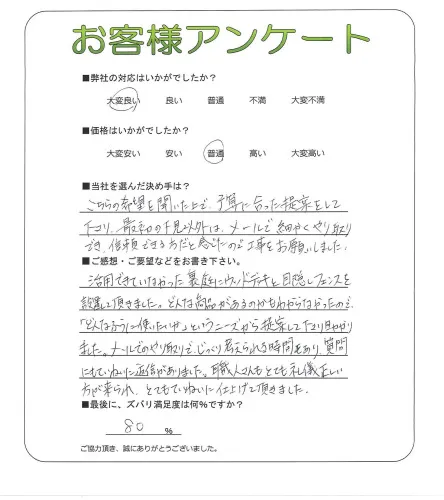 お客様アンケート
■弊社の対応はいかがでしたか？
大変良い 良い 普通 不満 大変不満
■価格はいかがでしたか？
大変安い 安い 普通 高い 大変高い
■当社を選んだ決め手は？
こちらの希望を聞いた上で、予算に合った提案をして
下さり、最初の下見以外は、メールで細やくやり取り
でき、信頼できる方だと感じたので工事をお願いしました。
■ご感想・ご要望などをお書き下さい。
活用できていなかった裏庭にウッドデッキと目隠しフェンスを
設置して頂きました。どんな商品があるのかもわからなかったので、
「どんなふうに使いたいか」というニーズから提案して下さり助かり
ました。メールでのやり取りで、じっくり考えられる時間もあり、質問
にもていねいに返信がありました。職人さんもとても礼儀正しい
方が来られ、とてもていねいに仕上げて頂きました。
■最後に、ズバリ満足度は何%ですか？
80 %
ご協力頂き、誠にありがとうございました。